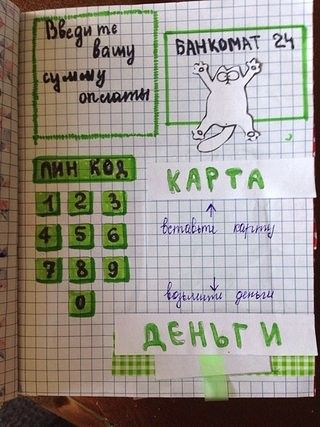 Введите
вашу
сумму
оплаты
БАНКОМАТ 24
ПИН КОД
1 2 3
4 5 6
7 8 9
0
КАРТА
вставьте карту
возьмите деньги
ДЕНЬГИ